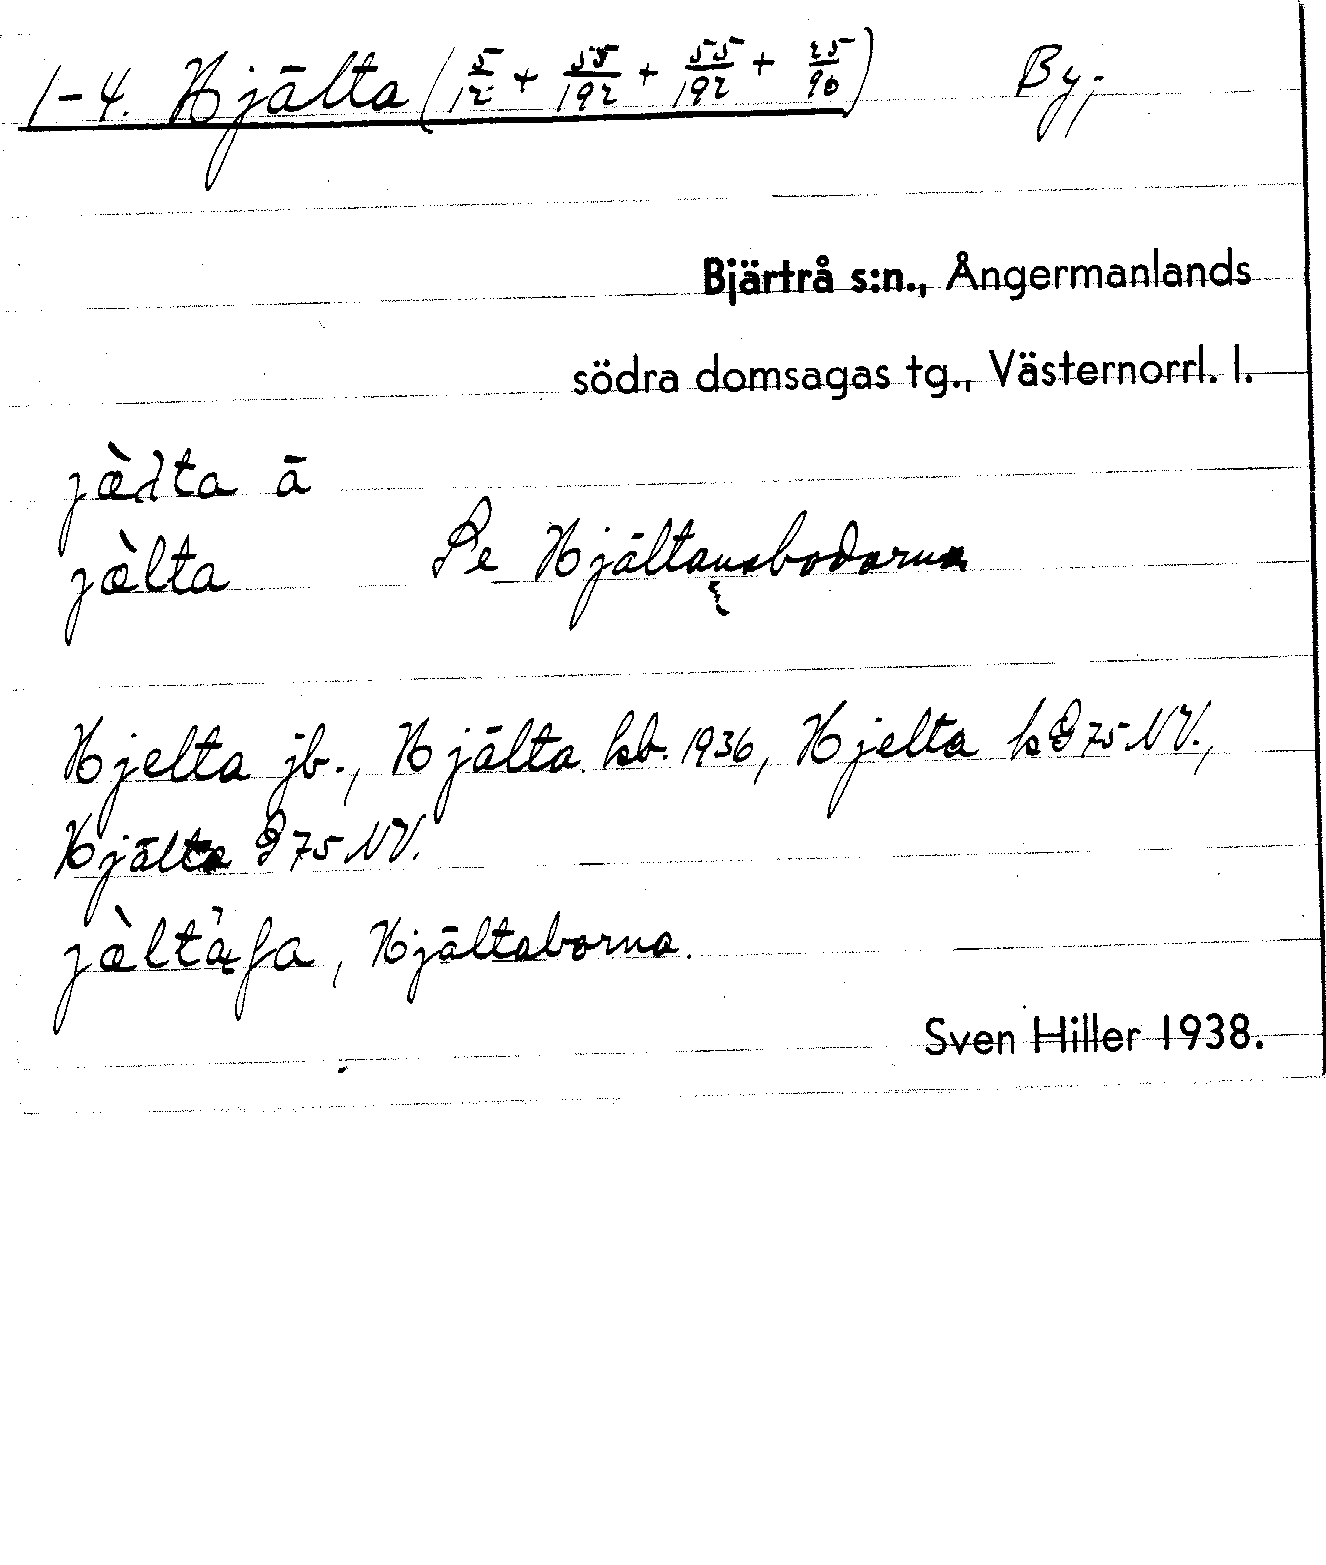 1-4. Hjälta (5/12 + 55/192 + 55/192 + 25/96) By;
Bjärtrå s:n., Ångermanlands
södra domsagas tg., Västernorrl. l.
jæ̀łta ā
jæ̀lta Se Hjältansbodarna
Hjelta jb., Hjälta kb. 1936, Hjelta k 975 NV.,
Hjälta 975 NV.
, Hjältaborna.
Sven Hiller 1938.